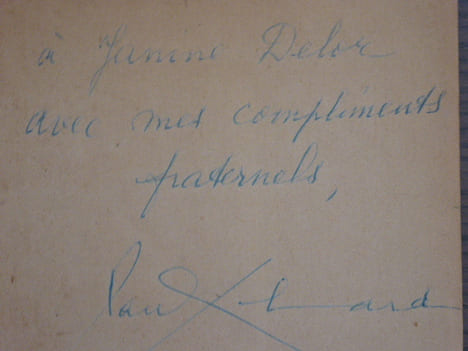 à Janine Delor
avec mes compliments
fraternels,
Paul